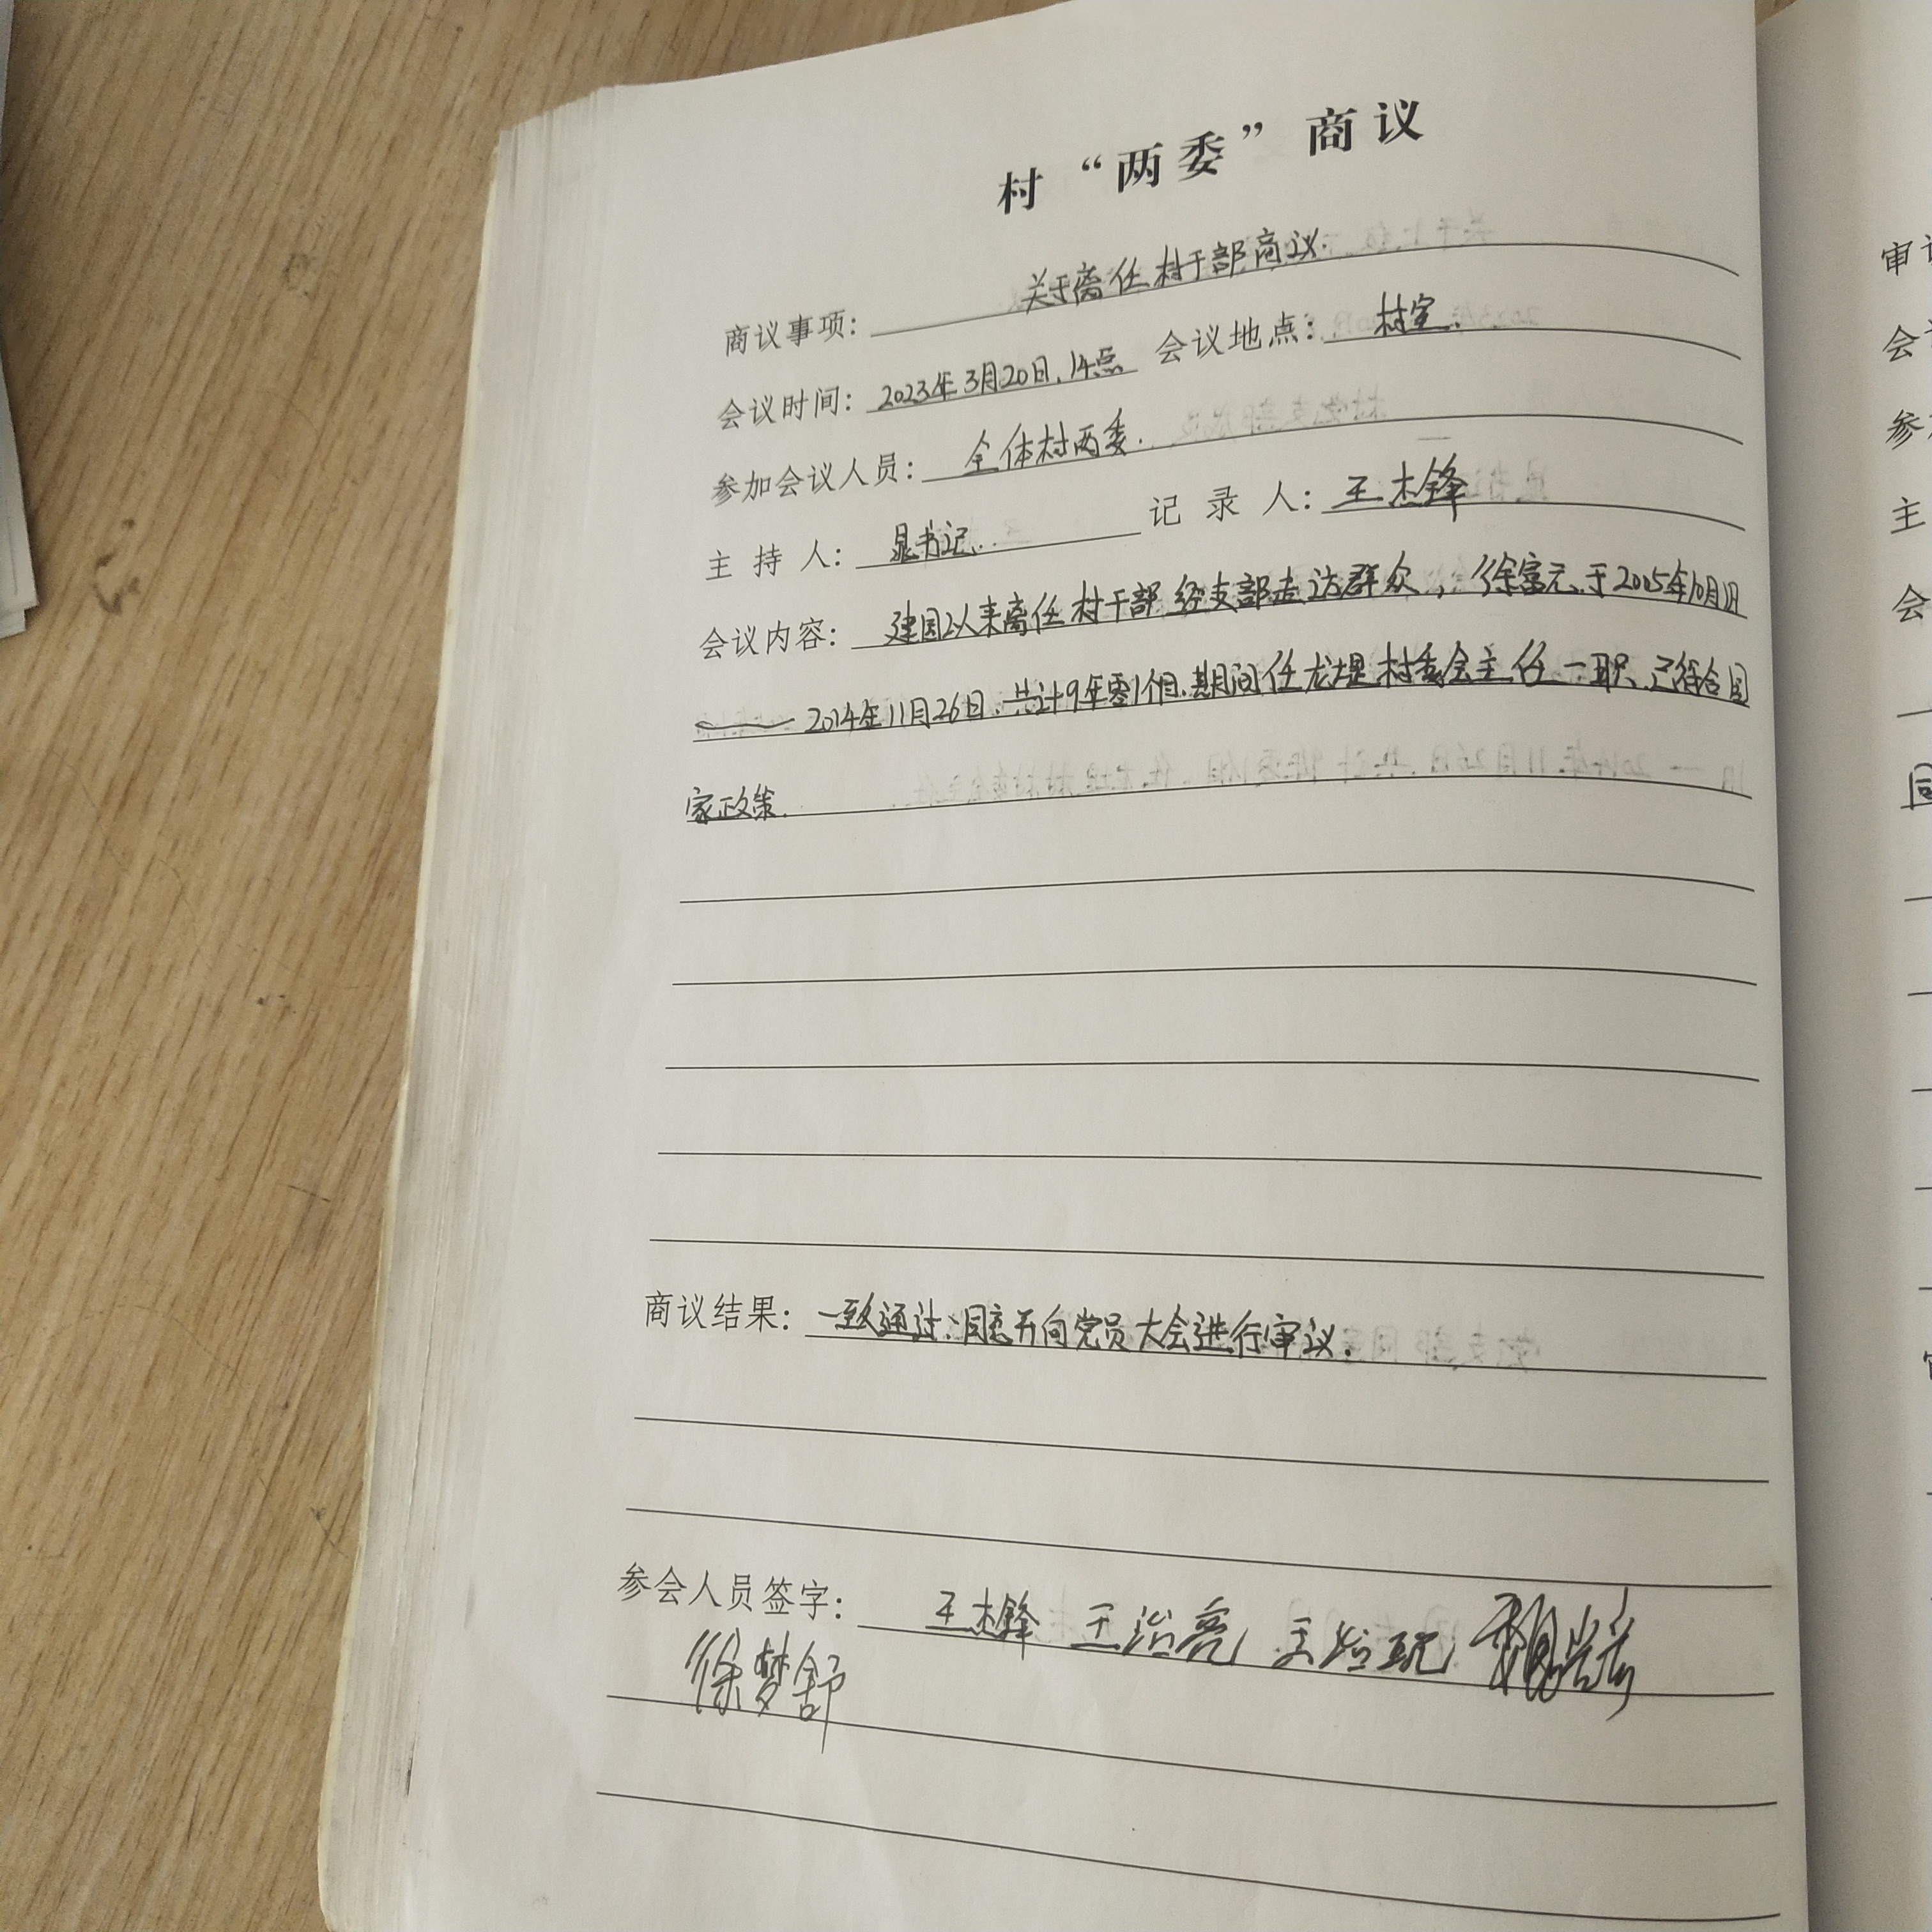 村“两委”商议
商议事项： 关于离任村干部商议.
会议时间： 2023年3月20日.14点 会议地点： 村室.
参加会议人员： 全体村两委.
主 持 人： 书记. 记 录 人： 王杰锋
会议内容： 建国以来离任村干部经支部走访群众，徐富元于2005年10月1日
—— 2014年11月26日.共计9年零1个月.期间任龙堤村委会主任一职.已符合国
家政策.
商议结果： 一致通过.同意召开党员大会进行审议.
参会人员签字： 王杰锋 王治亮
徐梦舒
审
会
参
主
会
同